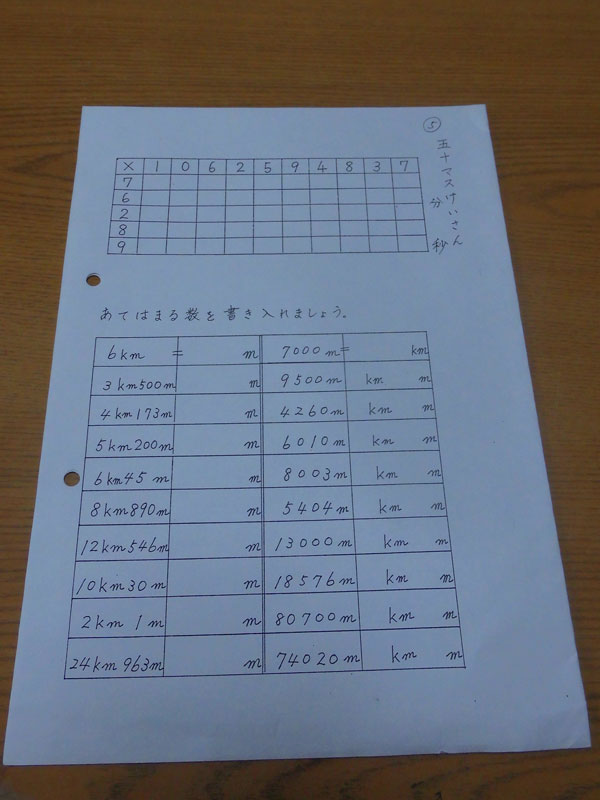 ⑤
五十マスけいさん
分 秒
× 1 0 6 2 5 9 4 8 3 7
7
6
2
8
9
あてはまる数を書き入れましょう。
6km = m 7000m = km
3km500m m 9500m km m
4km173m m 4260m km m
5km200m m 6010m km m
6km45m m 8003m km m
8km890m m 5404m km m
12km546m m 13000m km m
10km30m m 18576m km m
2km 1m m 80700m km m
24km963m m 74020m km m